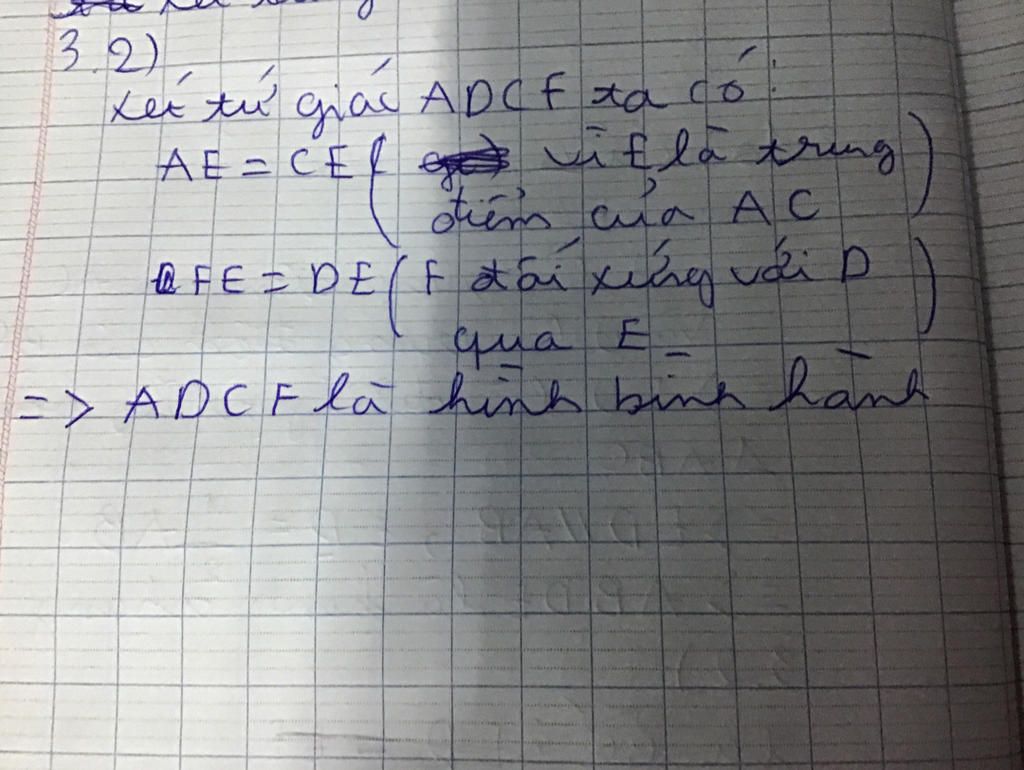 3.2)
Xét tứ giác ADCF ta có:
AE = CE ( vì E là trung
điểm của AC )
FE = DE ( F đối xứng với D
qua E )
=> ADCF là hình bình hành